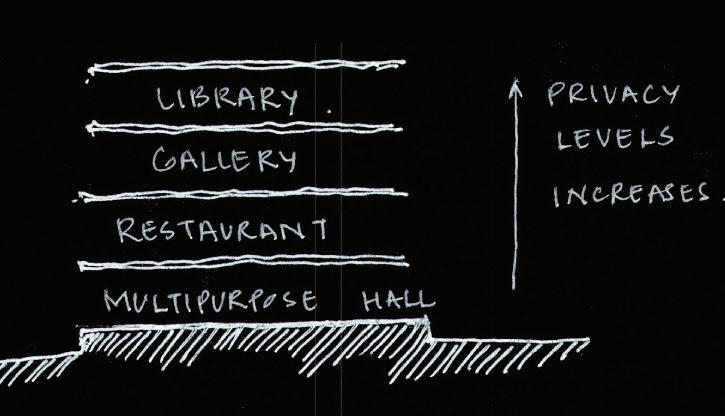 LIBRARY.
GALLERY
RESTAURANT
MULTIPURPOSE HALL
PRIVACY
LEVELS
INCREASES.